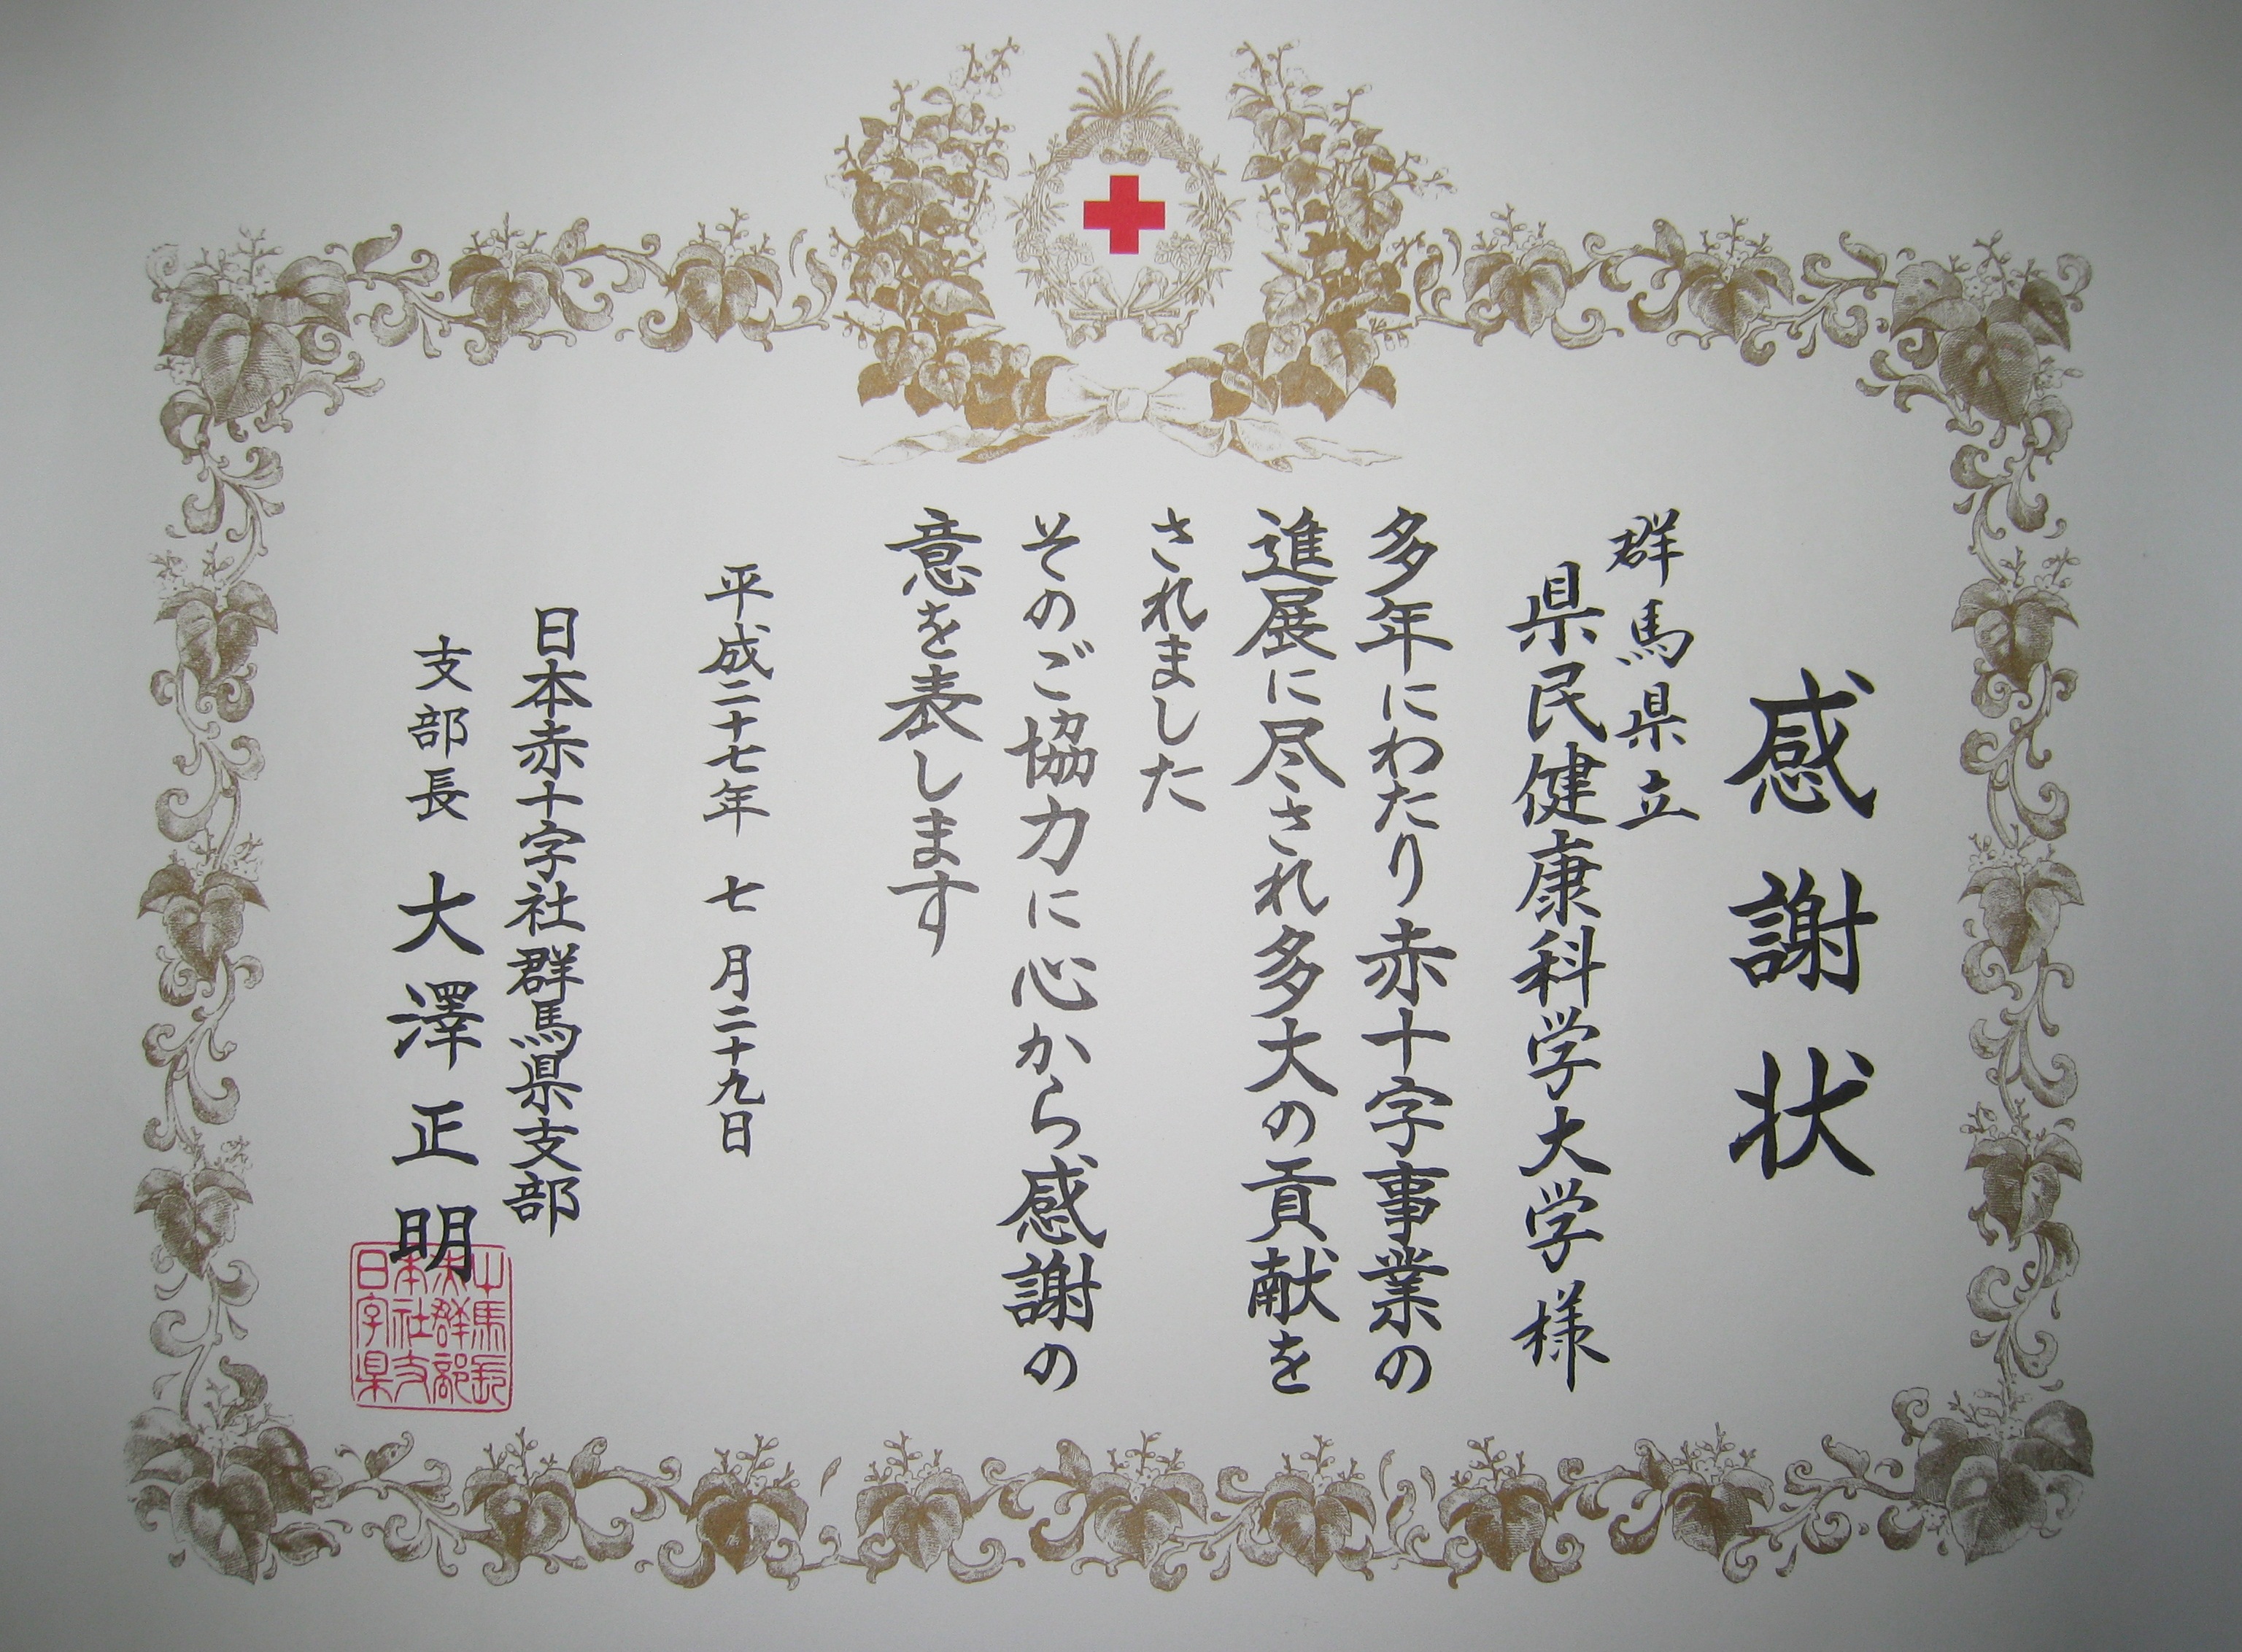 感謝状
群馬県立
県民健康科学大学様
多年にわたり赤十字事業の
進展に尽され多大の貢献を
されました
そのご協力に心から感謝の
意を表します
平成二十七年 七月二十九日
日本赤十字社群馬県支部
支部長 大澤正明
日本赤十
字社群馬
県支部長